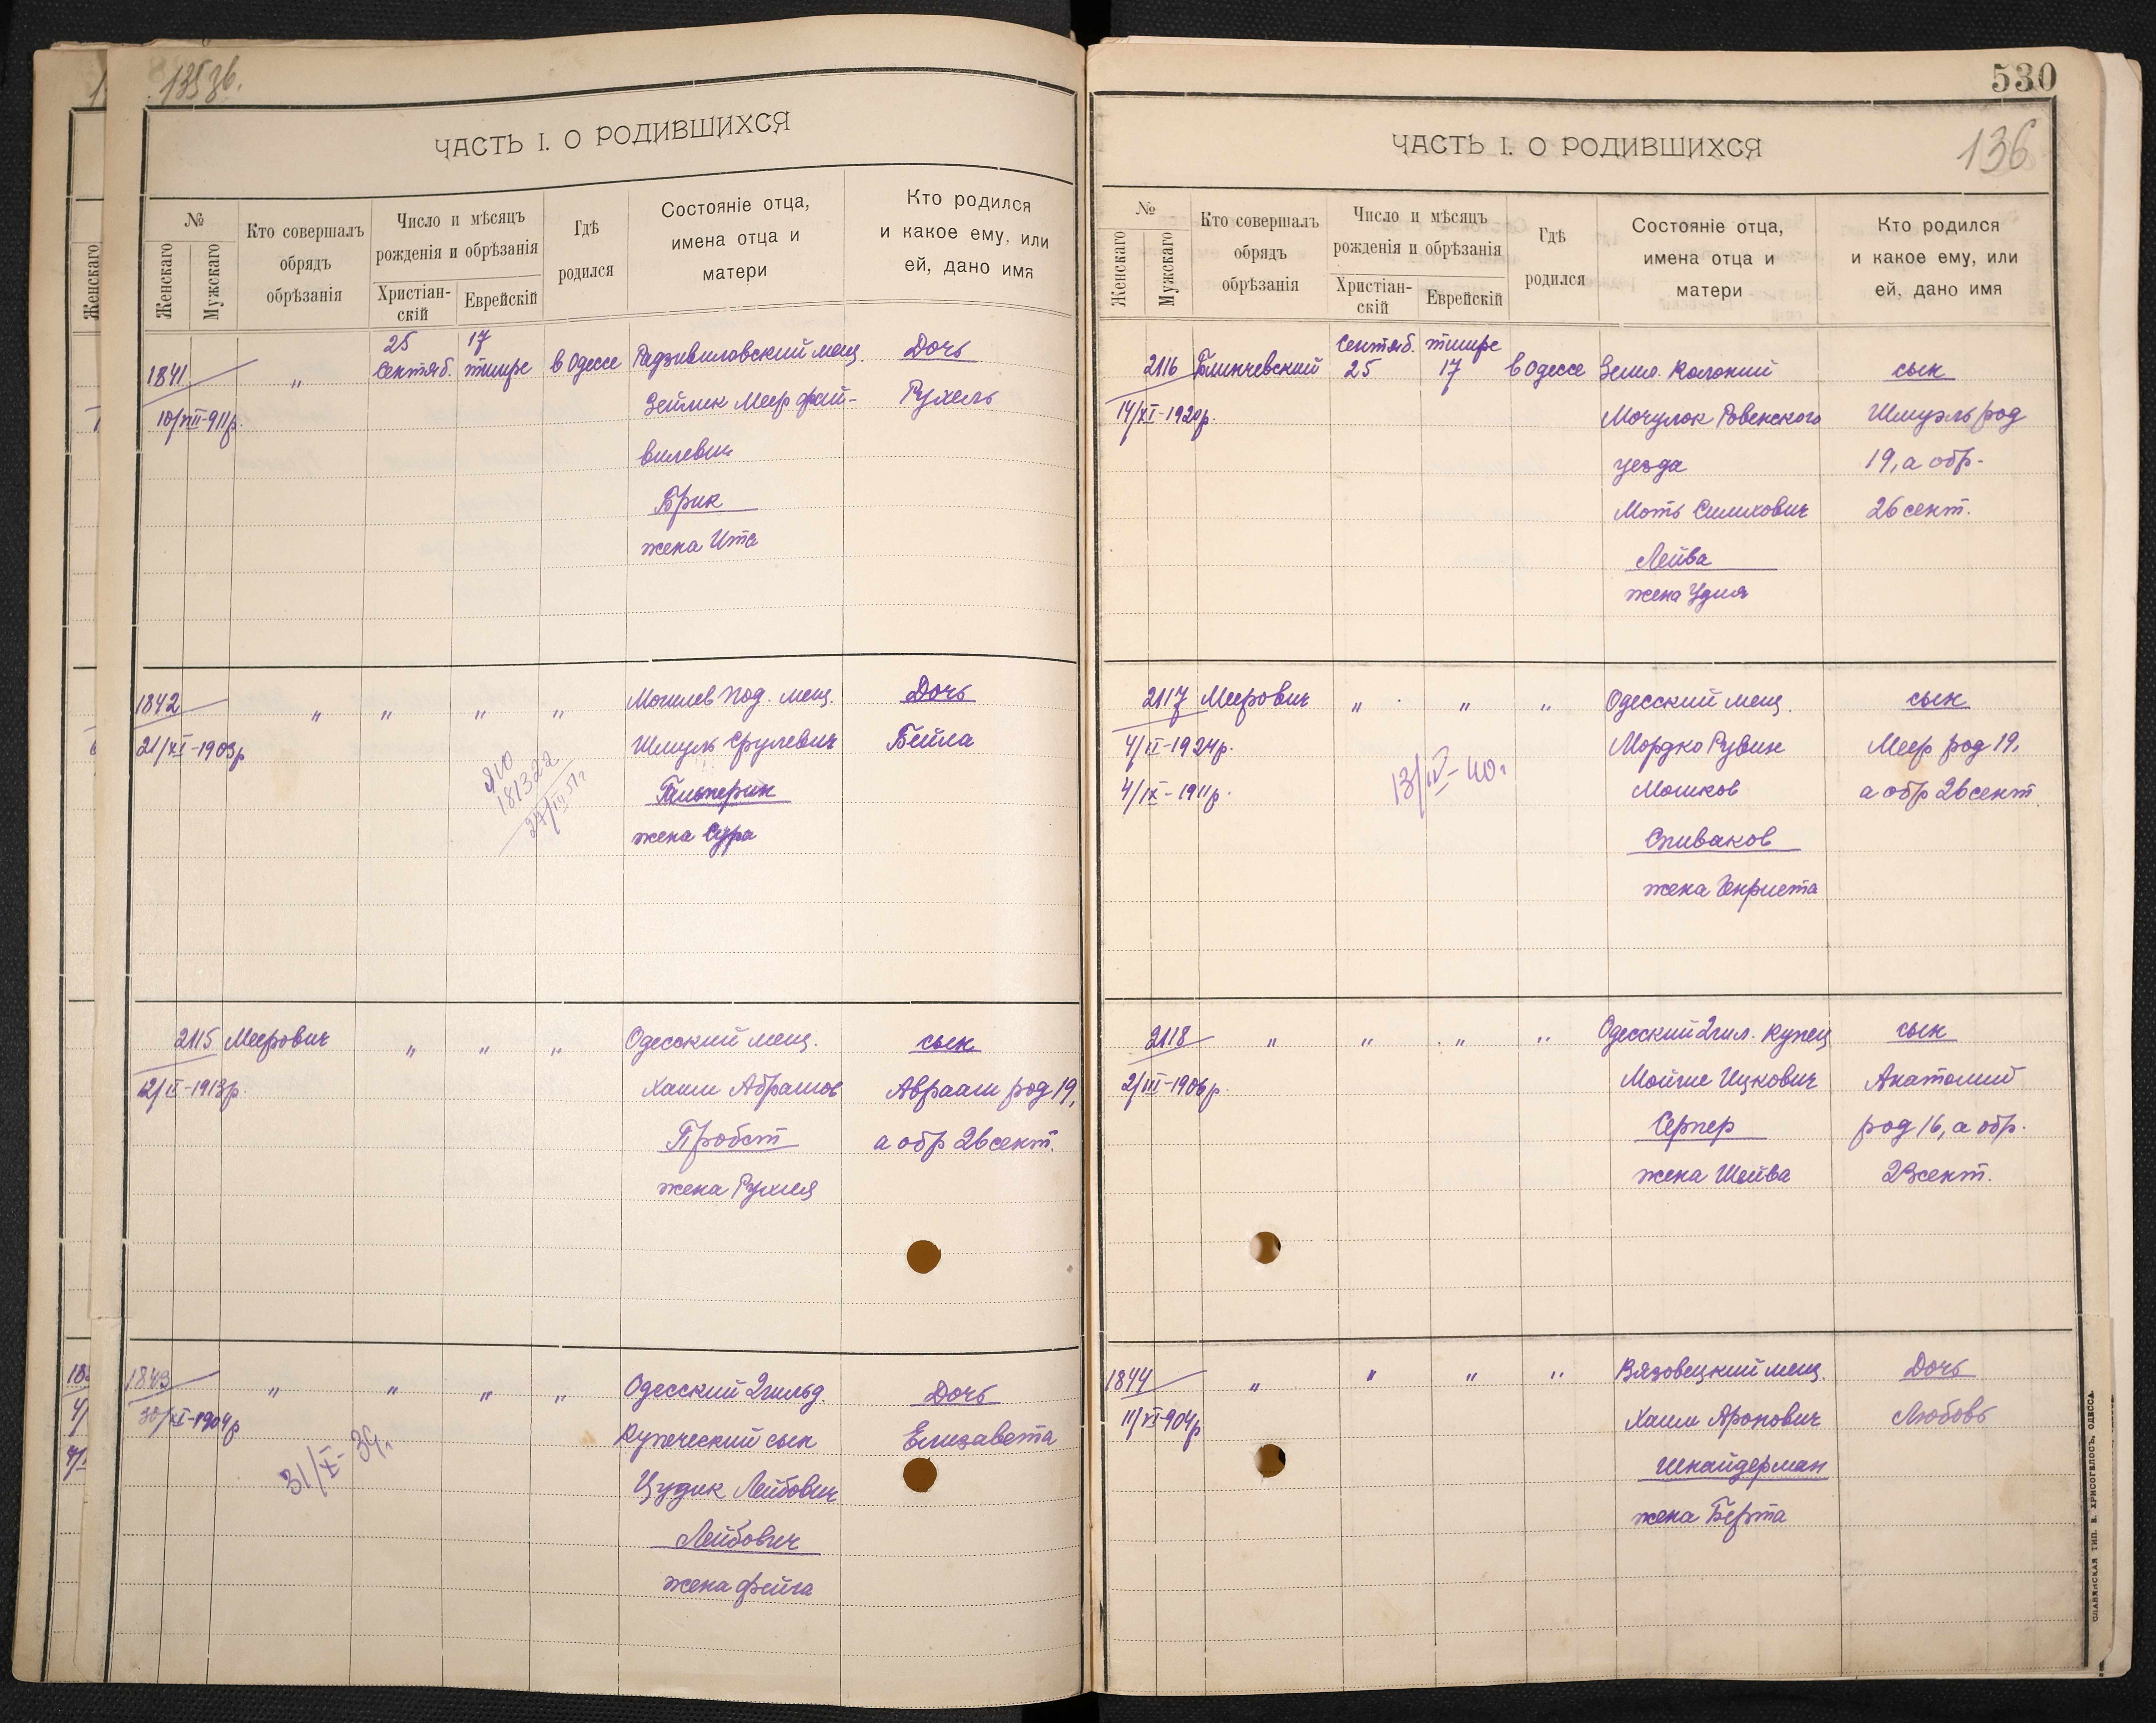 135 зв.
ЧАСТЬ I. О РОДИВШИХСЯ
№
Женскаго
Мужскаго
Кто совершалъ
обрядъ
обрѣзанія
Число и мѣсяцъ
рожденія и обрѣзанія
Христіан-
скій
Еврейскій
Гдѣ
родился
Состояніе отца,
имена отца и
матери
Кто родился
и какое ему, или
ей, дано имя
1841
10/VIII-911р.
"
25
Сентяб.
17
тишре
в Одессе
Радзивиловский мещ.
Зейлик Меер Фай-
вилевич
Брик
жена Ита
Дочь
Рухель
1842
21/XI-1903р
"
"
"
"
Могилев под. мещ.
Шмуль Срулевич
Гальперин
жена Сура
Дочь
Бейла
181322
2115
Меерович
12/II-1913р.
"
"
"
Одесский мещ.
Хаим Абрамов
Пробст
жена Рухля
сын
Авраам род 19,
а обр 26 сент.
1843
30/XI-1904р
"
"
"
"
31/X-39г.
Одесский 2 гильд.
Купеческий сын
Цудик Лейбович
Лейбович
жена Фейга
Дочь
Елизавета
530
136
ЧАСТЬ I. О РОДИВШИХСЯ
№
Женскаго
Мужскаго
Кто совершалъ
обрядъ
обрѣзанія
Число и мѣсяцъ
рожденія и обрѣзанія
Христіан-
скій
Еврейскій
Гдѣ
родился
Состояніе отца,
имена отца и
матери
Кто родился
и какое ему, или
ей, дано имя
2116
14/XI-1920р.
Блинчевский
Сентяб.
25
тишре
17
в Одессе
Земл. Колоний
Мочулок Ровенского
уезда
Моть Симхович
Лейва
жена Удля
сын
Шмуэль род
19, а обр-
26 сент.
2117
4/II-1924р.
4/IX-1911р.
Меерович
"
"
"
13/IV-40г
Одесский мещ.
Мордко Рувин
Мошков
Спиваков
жена Генриета
сын
Меер род 19,
а обр 26 сент.
2118
2/III-1906р.
"
"
"
"
Одесский 2 гил. купец
Мойше Ицкович
Серпер
жена Шейва
сын
Анатолий
род 16, а обр.
23 сент.
1844
11/VI-904р
"
"
"
"
Вязовецкий мещ.
Хаим Аронович
Шнайдерман
жена Берта
Дочь
Любовь
СЛАВЯНСКАЯ ТИП. Е. ХРИСОГЕЛОСЪ, ОДЕССА.